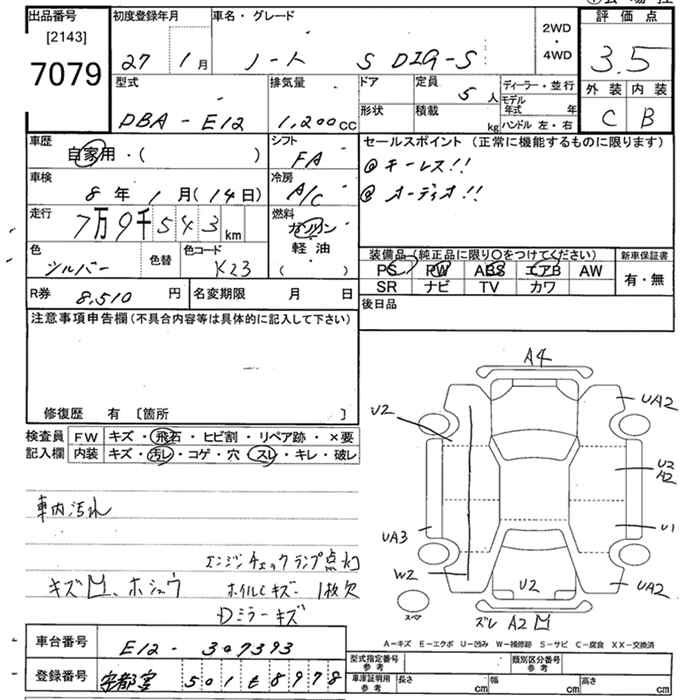 出品番号
[2143]
7079
初度登録年月
27 1月
車名・グレード
ノート S DIG-S
2WD
・
4WD
評価点
3.5
外装 内装
C B
型式
DBA-E12
排気量
1,200cc
ドア
形状
定員
5人
積載
kg
ディーラー・並行
モデル年式 年
ハンドル 左・右
車歴
自家用・( )
シフト
FA
車検
8年 1月(14日)
冷房
A/C
走行
7万9千543km
燃料
ガソリン
軽油
( )
色
シルバー
色替
色コード
K23
R券
8,510円
名変期限 月 日
セールスポイント (正常に機能するものに限ります)
@キーレス!!
@オーディオ!!
装備品(純正品に限り〇をつけてください)
PS PW ABS エアB AW
SR ナビ TV カワ
新車保証書
有・無
後日品
注意事項申告欄(不具合内容等は具体的に記入して下さい)
修復歴 有 〔箇所 〕
検査員
記入欄
FW キズ・飛石・ヒビ割・リペア跡・×要
内装 キズ・汚レ・コゲ・穴・スレ・キレ・破レ
車内汚れ
エンジンチェックランプ点灯
キズ凹、ホシュウ ホイルCキズ・1枚欠
Dミラーキズ
A4
U2
UA2
U2
A2
UA3
U1
W2
U2
UA2
スペア
ズレ A2凹
A-キズ E-エクボ U-凹み W-補修跡 S-サビ C-腐食 XX-交換済
車台番号
E12-307393
登録番号
501 8978
型式指定番号
参考
類別区分番号
参考
車庫証明用
参考
長さ cm 幅 cm 高さ cm